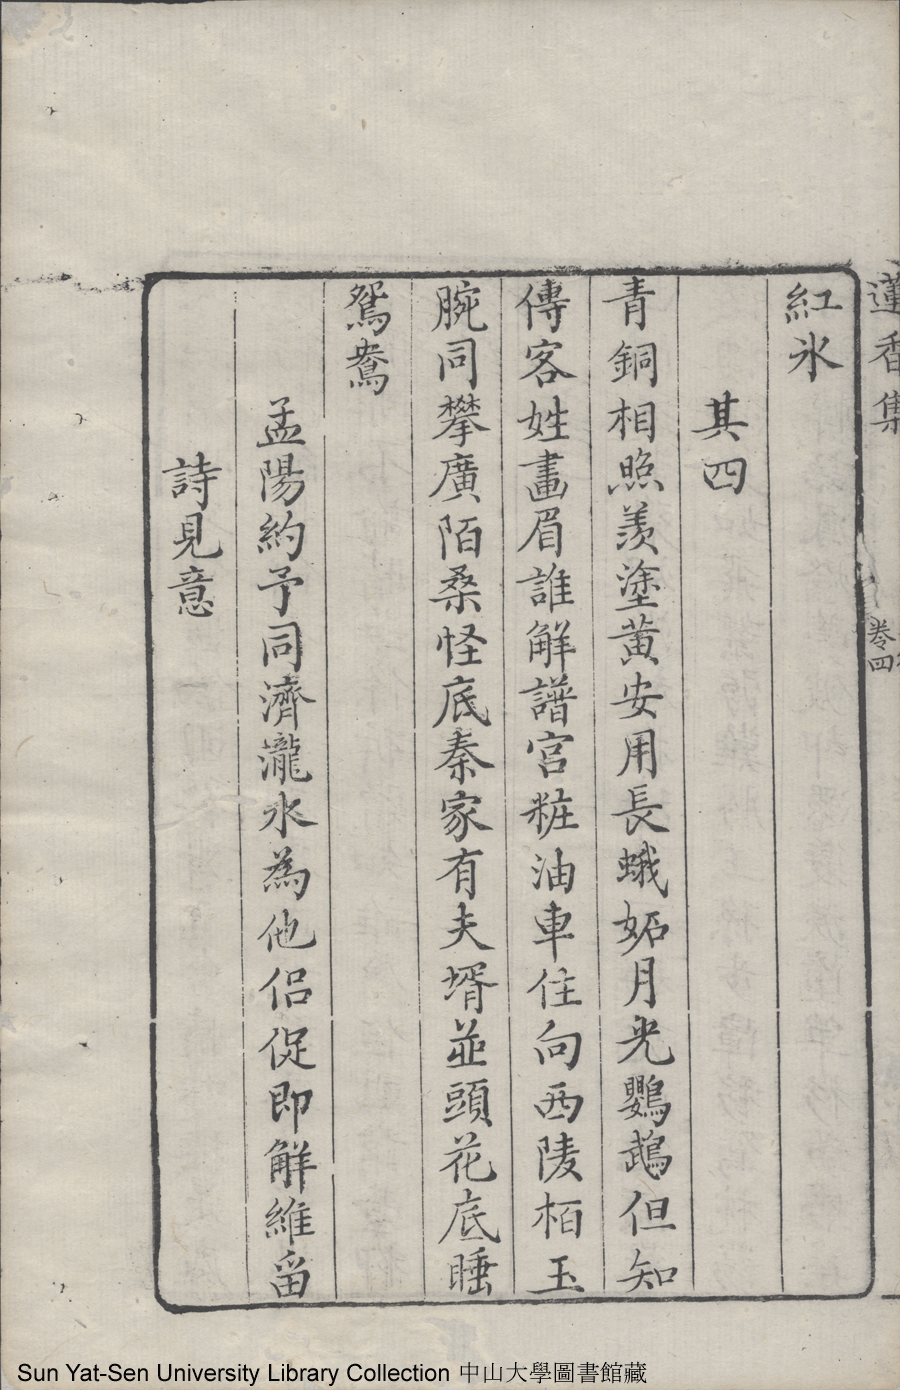 蓮香集
卷四
紅氷
其四
青銅相照羨塗黃安用長蛾妬月光鸚鵡但知
傳客姓畫眉誰解譜宮粧油車住向西陵栢玉
腕同攀廣陌桑怪底秦家有夫壻並頭花底睡
鴛鴦
孟陽約予同濟瀧水為他侣促即解維畱
詩見意
Sun Yat-Sen University Library Collection 中山大學圖書館藏